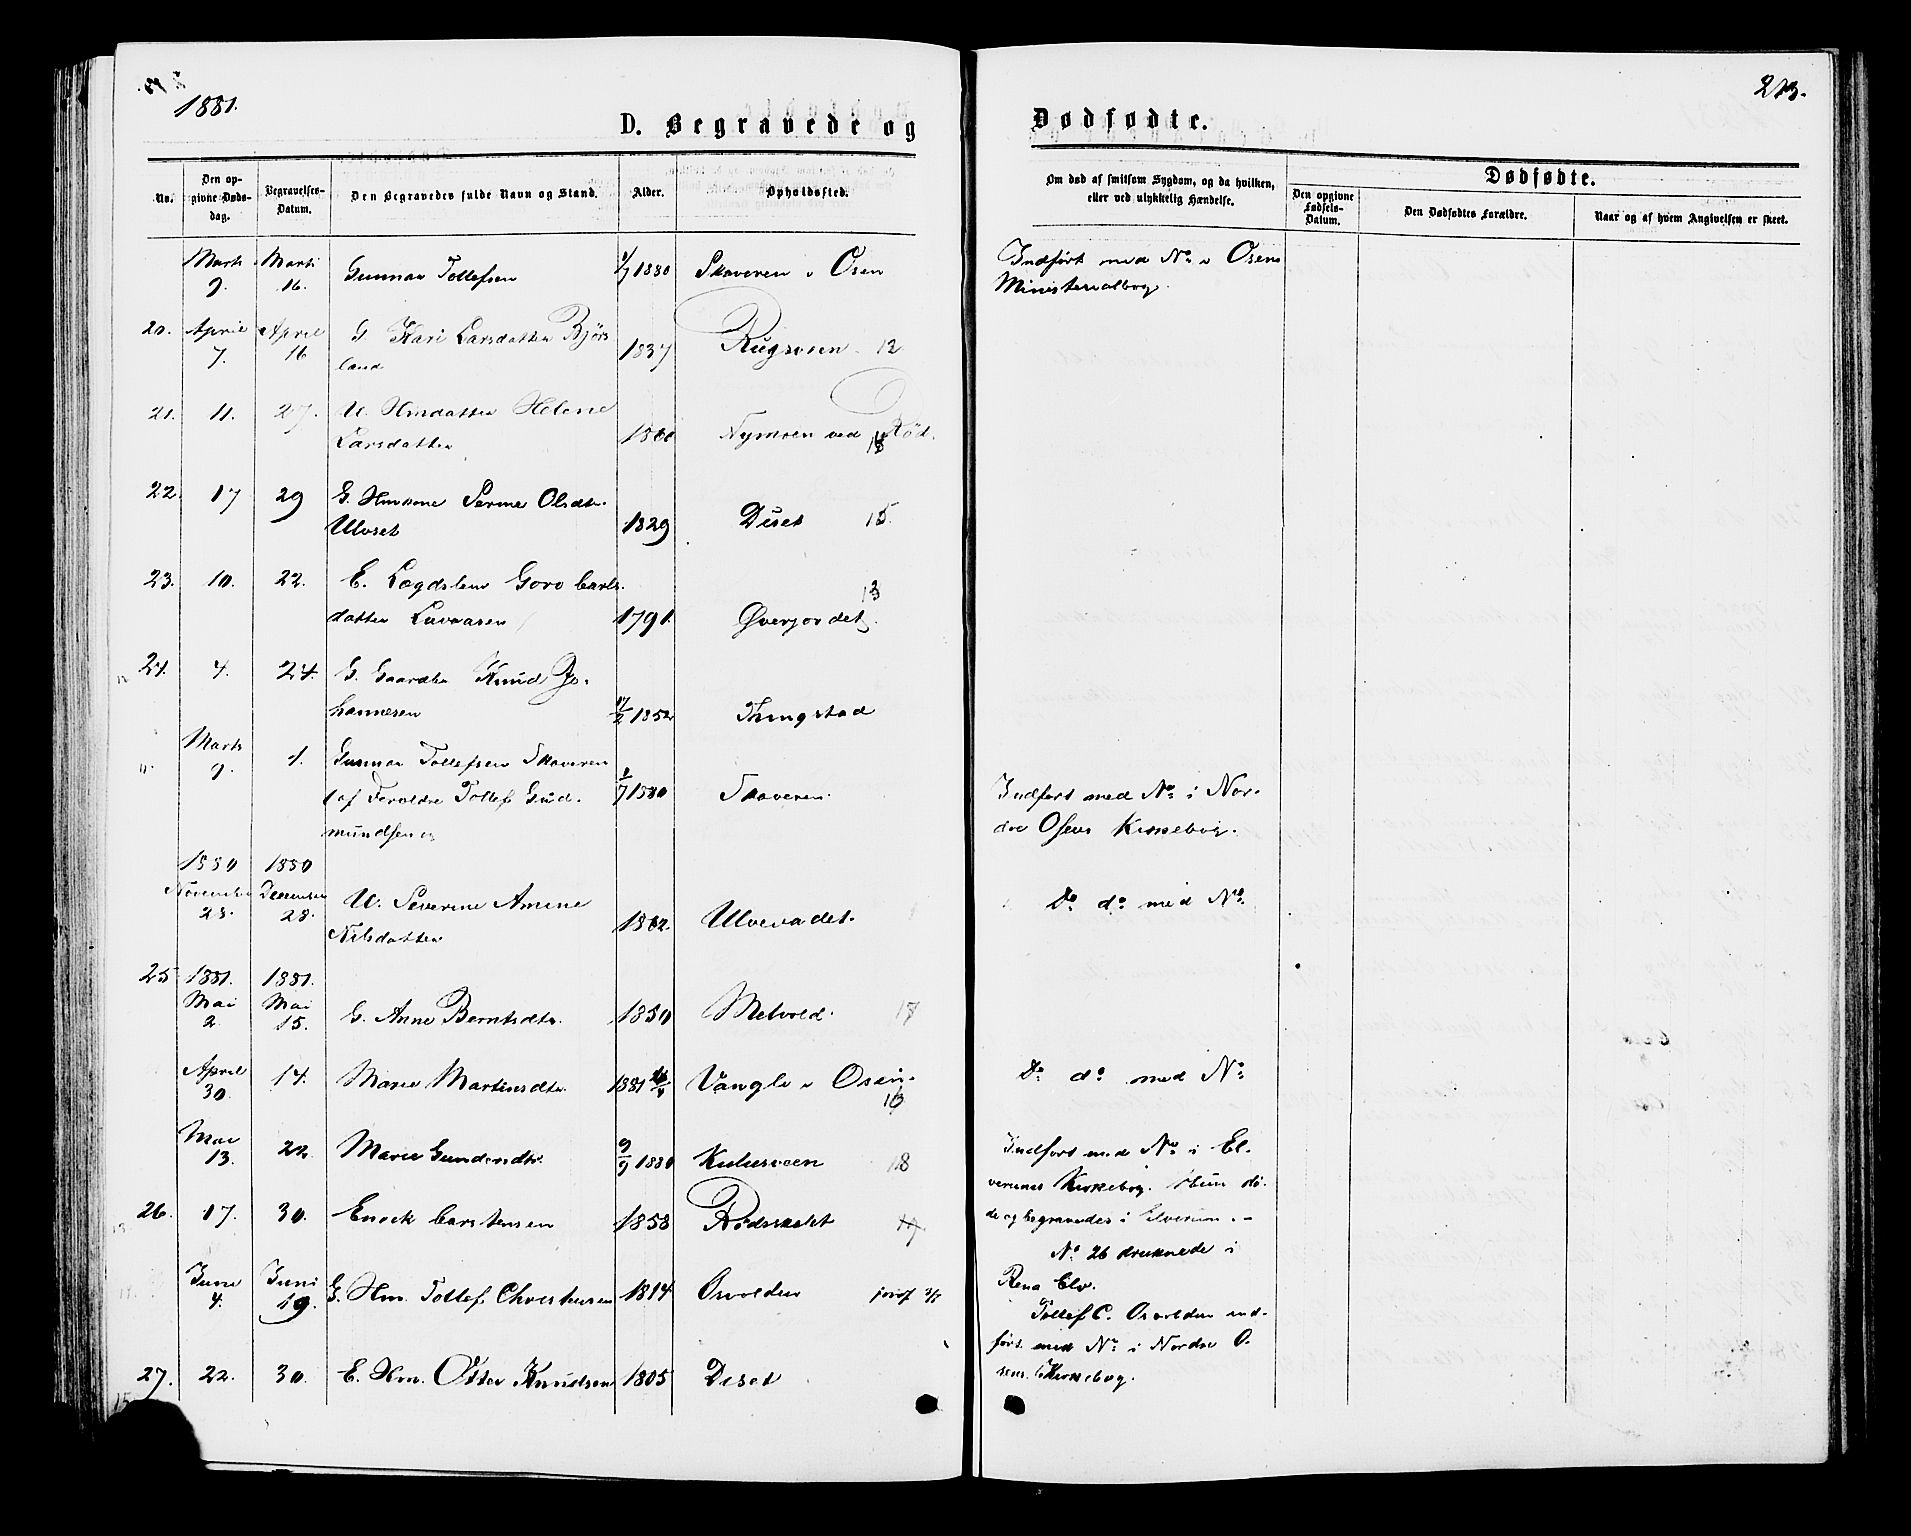 1881.
213.
D. Begravede og Dødfødte.
No.
Den op-
givne Døds-
dag.
Begravelses-
Datum.
Den Begravedes fulde Navn og Stand.
Alder.
Opholdssted.
Om død af smitsom Sygdom, og da hvilken,
eller ved ulykkelig Hændelse.
Dødfødte.
Den opgivne
Fødsels-
Datum.
Den Dødfødtes Forældre.
Naar og af hvem Angivelsen er skeet.
Marts 9. Marts 16. Gunnar Tollefsen 1/7 1880 Skoveren i Osen Indført med No i Osens
Ministerialbog.
20. April 7. April 16 G. Kari Larsdatter Bjørs
land 1837 Rugsveen 12
21. 11. 27. U. Hmdatter Helene
Larsdatter 1860 Nymoen ved Rød.
22. 17 29 G. Hmkone Serine Olsdtr.
Ulvset 1829 Diset 15.
23. 10. 22. E. Lægdslem Goro Carls
datter Lavaasen 1791. Øverjordet. 13
24. 4. 24. G. Gaardbr Knud Jo-
hannesen 17/2 1852 Tringstad
Marts 9. 1. Gunnar Tollefsen Skoveren
(af Forældre Tollef Gud-
mundsen og 1/7 1880 Skoveren. Indført med No i Nor-
dre Osens Kirkebog.
1880 1880
November 23. December 28. U. Severine Amine
Nilsdatter 1862. Ulvevadet. Do do med No
25 1881. 1881.
Mai 2. Mai 15. G. Anne Berntsdtr. 1850 Melvold 17
April 30. 14. Marie Martinsdtr. 1881 Vangli i Osen. Do do med No
Mai 13. 22. Marie Gundersdtr. 9/9 1880 18 Indført med No i El-
verums Kirkebog. Hun dø-
de og begravedes i Elverum. -
26. 17. 30. Enock Carstensen 1858 Rødsvaldet
No 26 druknede i
Rena Elv.
Juni 4. Juni 19. G. Hm. Tollef Christensen 1814 Osvolden
Tollef C. Osvolden ind-
ført med No i Nordre O-
sens Kirkebog.
27. 22. 30. E. Hm. Otter Knudsen 1805 Diset